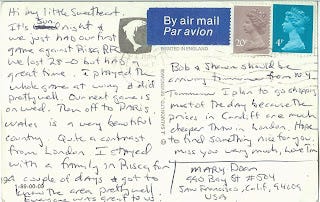 Hi my little Sweetheart.
Sun.
It's night &
we just had our first
game against Risca, RFC.
we lost 28-0 but had a
great time. I played the
whole game at wing & did
pretty well. Our next game is
on Wed. Then off to PARIS
WALES is a very beautiful
country. Quite a contrast
from London. I stayed
with a family in Risca for
a couple of days & got to
know the area pretty well.
Everyone was great to us
1-99-00-08
By air mail
Par avion
PRINTED IN ENGLAND
20P
4P
Bob & Shawn should be
arriving from N.Y.
Tommorrow I plan to go shopping
most of the day because the
prices in Cardiff are much
cheaper than in London. Hope
to find something nice for you
miss you very much, love Tom
MARY Doan
990 Bay St #504
San Francisco, Calif, 94109
USA